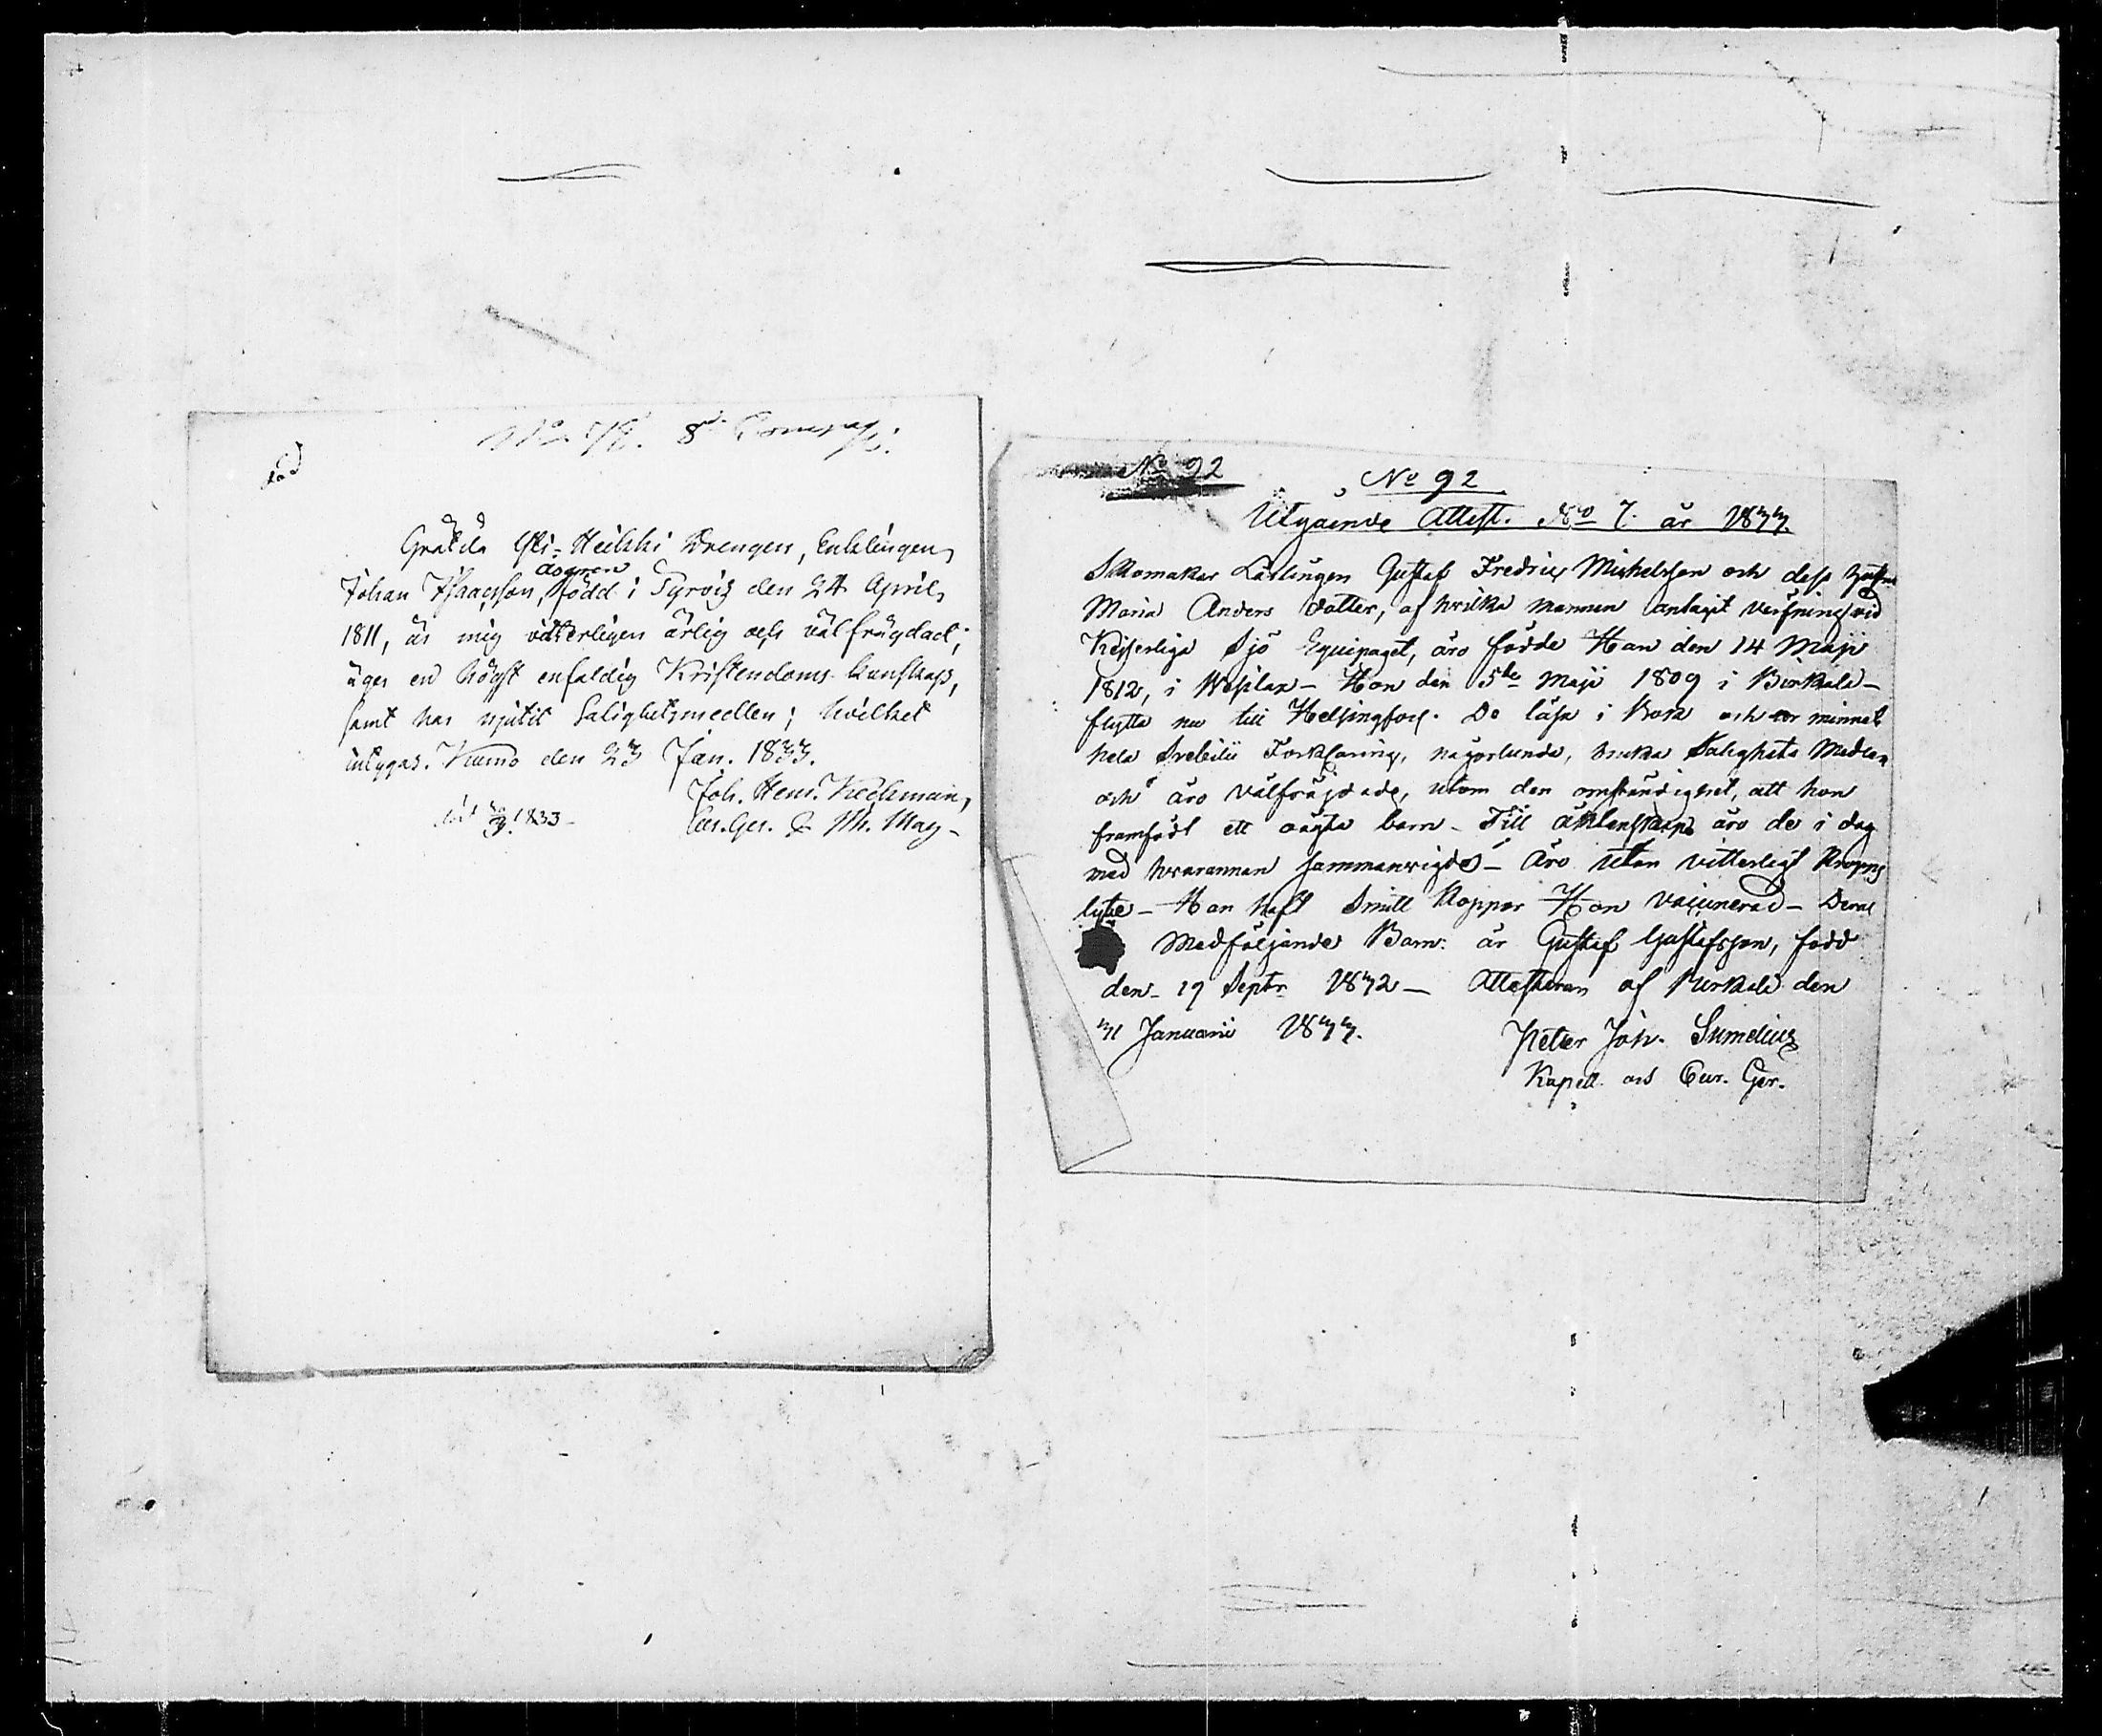 8de Compagi:
Gräkilä Yli-Heikki Drengen, Enklingen,
Johan Isaacsson, Asgren född i Tyrvis den 24 April,
1811, är mig vitterligen ärlig och välfrägdad;
äger en högst enfaldig Kristendoms kunskap,
samt har njutit Salighetsmedlen; hvilket
intygas. Kumo den 23 Jan. 1833.
Joh. Henr. Keckman,
Cur. Ger. & Ph. Mag.
1833
No 92
No 92
Utgående Attest. No 7. år 1833.
Skomakar Lärlingen Gustaf Fredric Michelsson och dess hustru
Maria Anders dotter, af hvilka mannen antagit värfning vid
Kejserliga Sjö Equipaget, äro födde Han den 14 Maji
1812, i Vesilax - Hon den 5te Maji 1809 i Birkala -
flytta nu till Helsingfors. De läsa i Bok och or minnet
hela Svebilii Förklaring, någorlunda, bruka Salighets Medlen
och äro välfräjdade, utom den omständighet, att hon
framfödt ett oägta barn - Till äktenskap äro de i dag
med hvarannan sammanvigde - Äro utan vitterligt Kropps
lyte - Han haft Smitt Koppor Hon Vaccinerad - Deras
Medföljande Barn: är Gustaf Gustafsson, född
den 19 Septr 1832 - Attesteras af Birkala den
31 Januarii 1833.
Peter Joh. Sumelius
Kapell. och Cur. Ger.